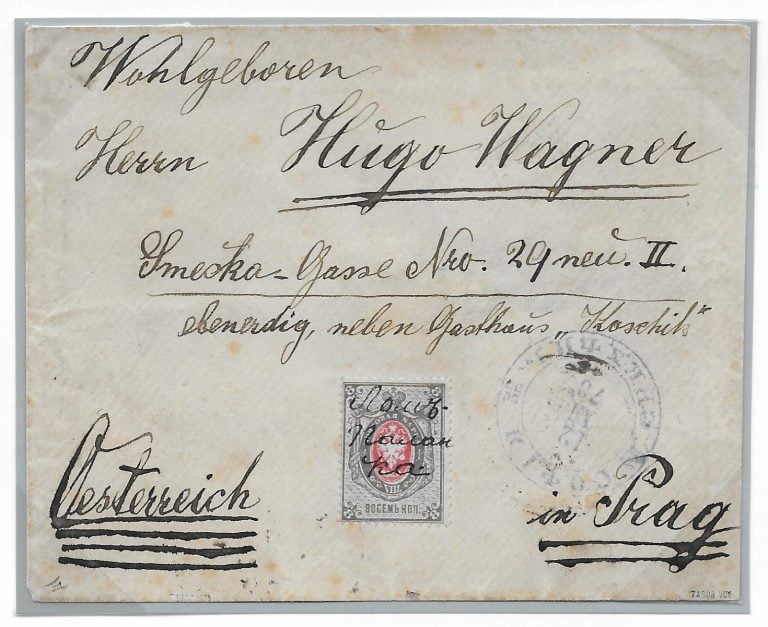 Wohlgeboren
Herrn Hugo Wagner
Smecka-Gasse Nro. 29 neu. II.
ebenerdig, neben Gasthaus „Koschik“
Ломъ-
Палан
ка
ВОСЕМЬ КОП.
VIII
Oesterreich
in Prag